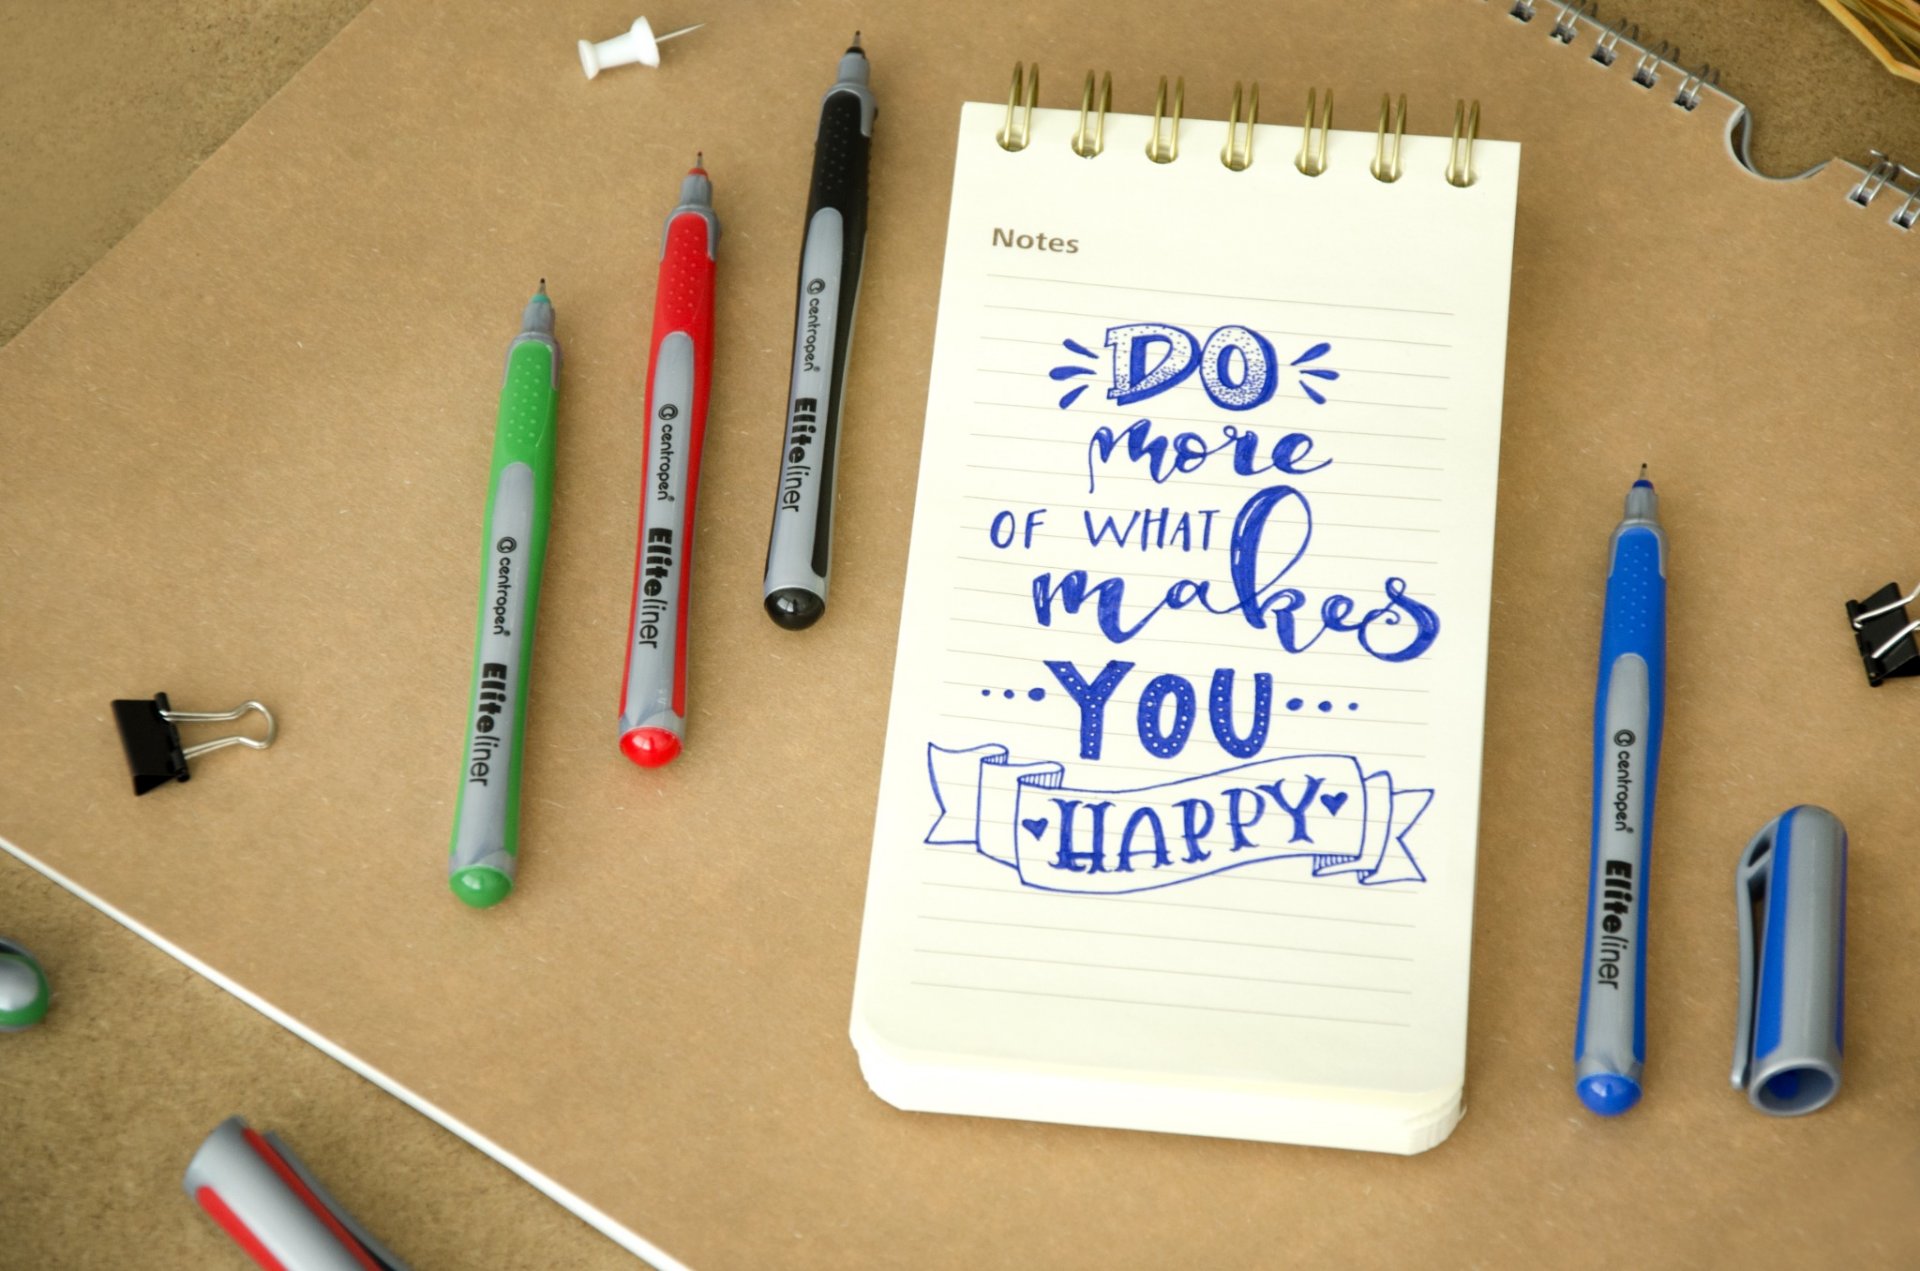 Notes
DO
more
OF WHAT
makes
YOU
HAPPY
centropen® Eliteliner
centropen® Eliteliner
centropen® Eliteliner
centropen® Eliteliner